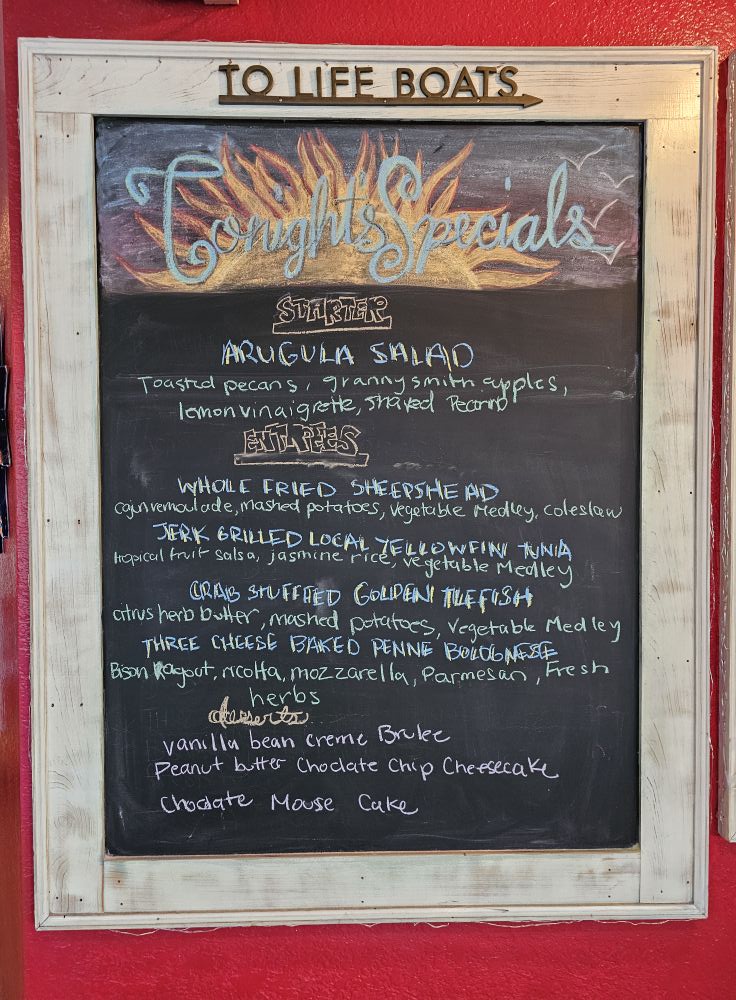 TO LIFE BOATS
Tonight's Specials
STARTER
ARUGULA SALAD
Toasted pecans, granny smith apples,
lemon vinaigrette, shaved Pecorino
ENTREES
WHOLE FRIED SHEEPSHEAD
cajun remoulade, mashed potatoes, vegetable Medley, coleslaw
JERK GRILLED LOCAL YELLOWFIN TUNA
tropical fruit salsa, jasmine rice, vegetable Medley
CRAB STUFFED GOLDEN TILEFISH
citrus herb butter, mashed potatoes, Vegetable Medley
THREE CHEESE BAKED PENNE BOLOGNESE
Bison Ragout, ricotta, mozzarella, Parmesan, Fresh
herbs
desserts
vanilla bean creme Brulee
Peanut butter Choclate Chip Cheesecake
Choclate Mouse Cake